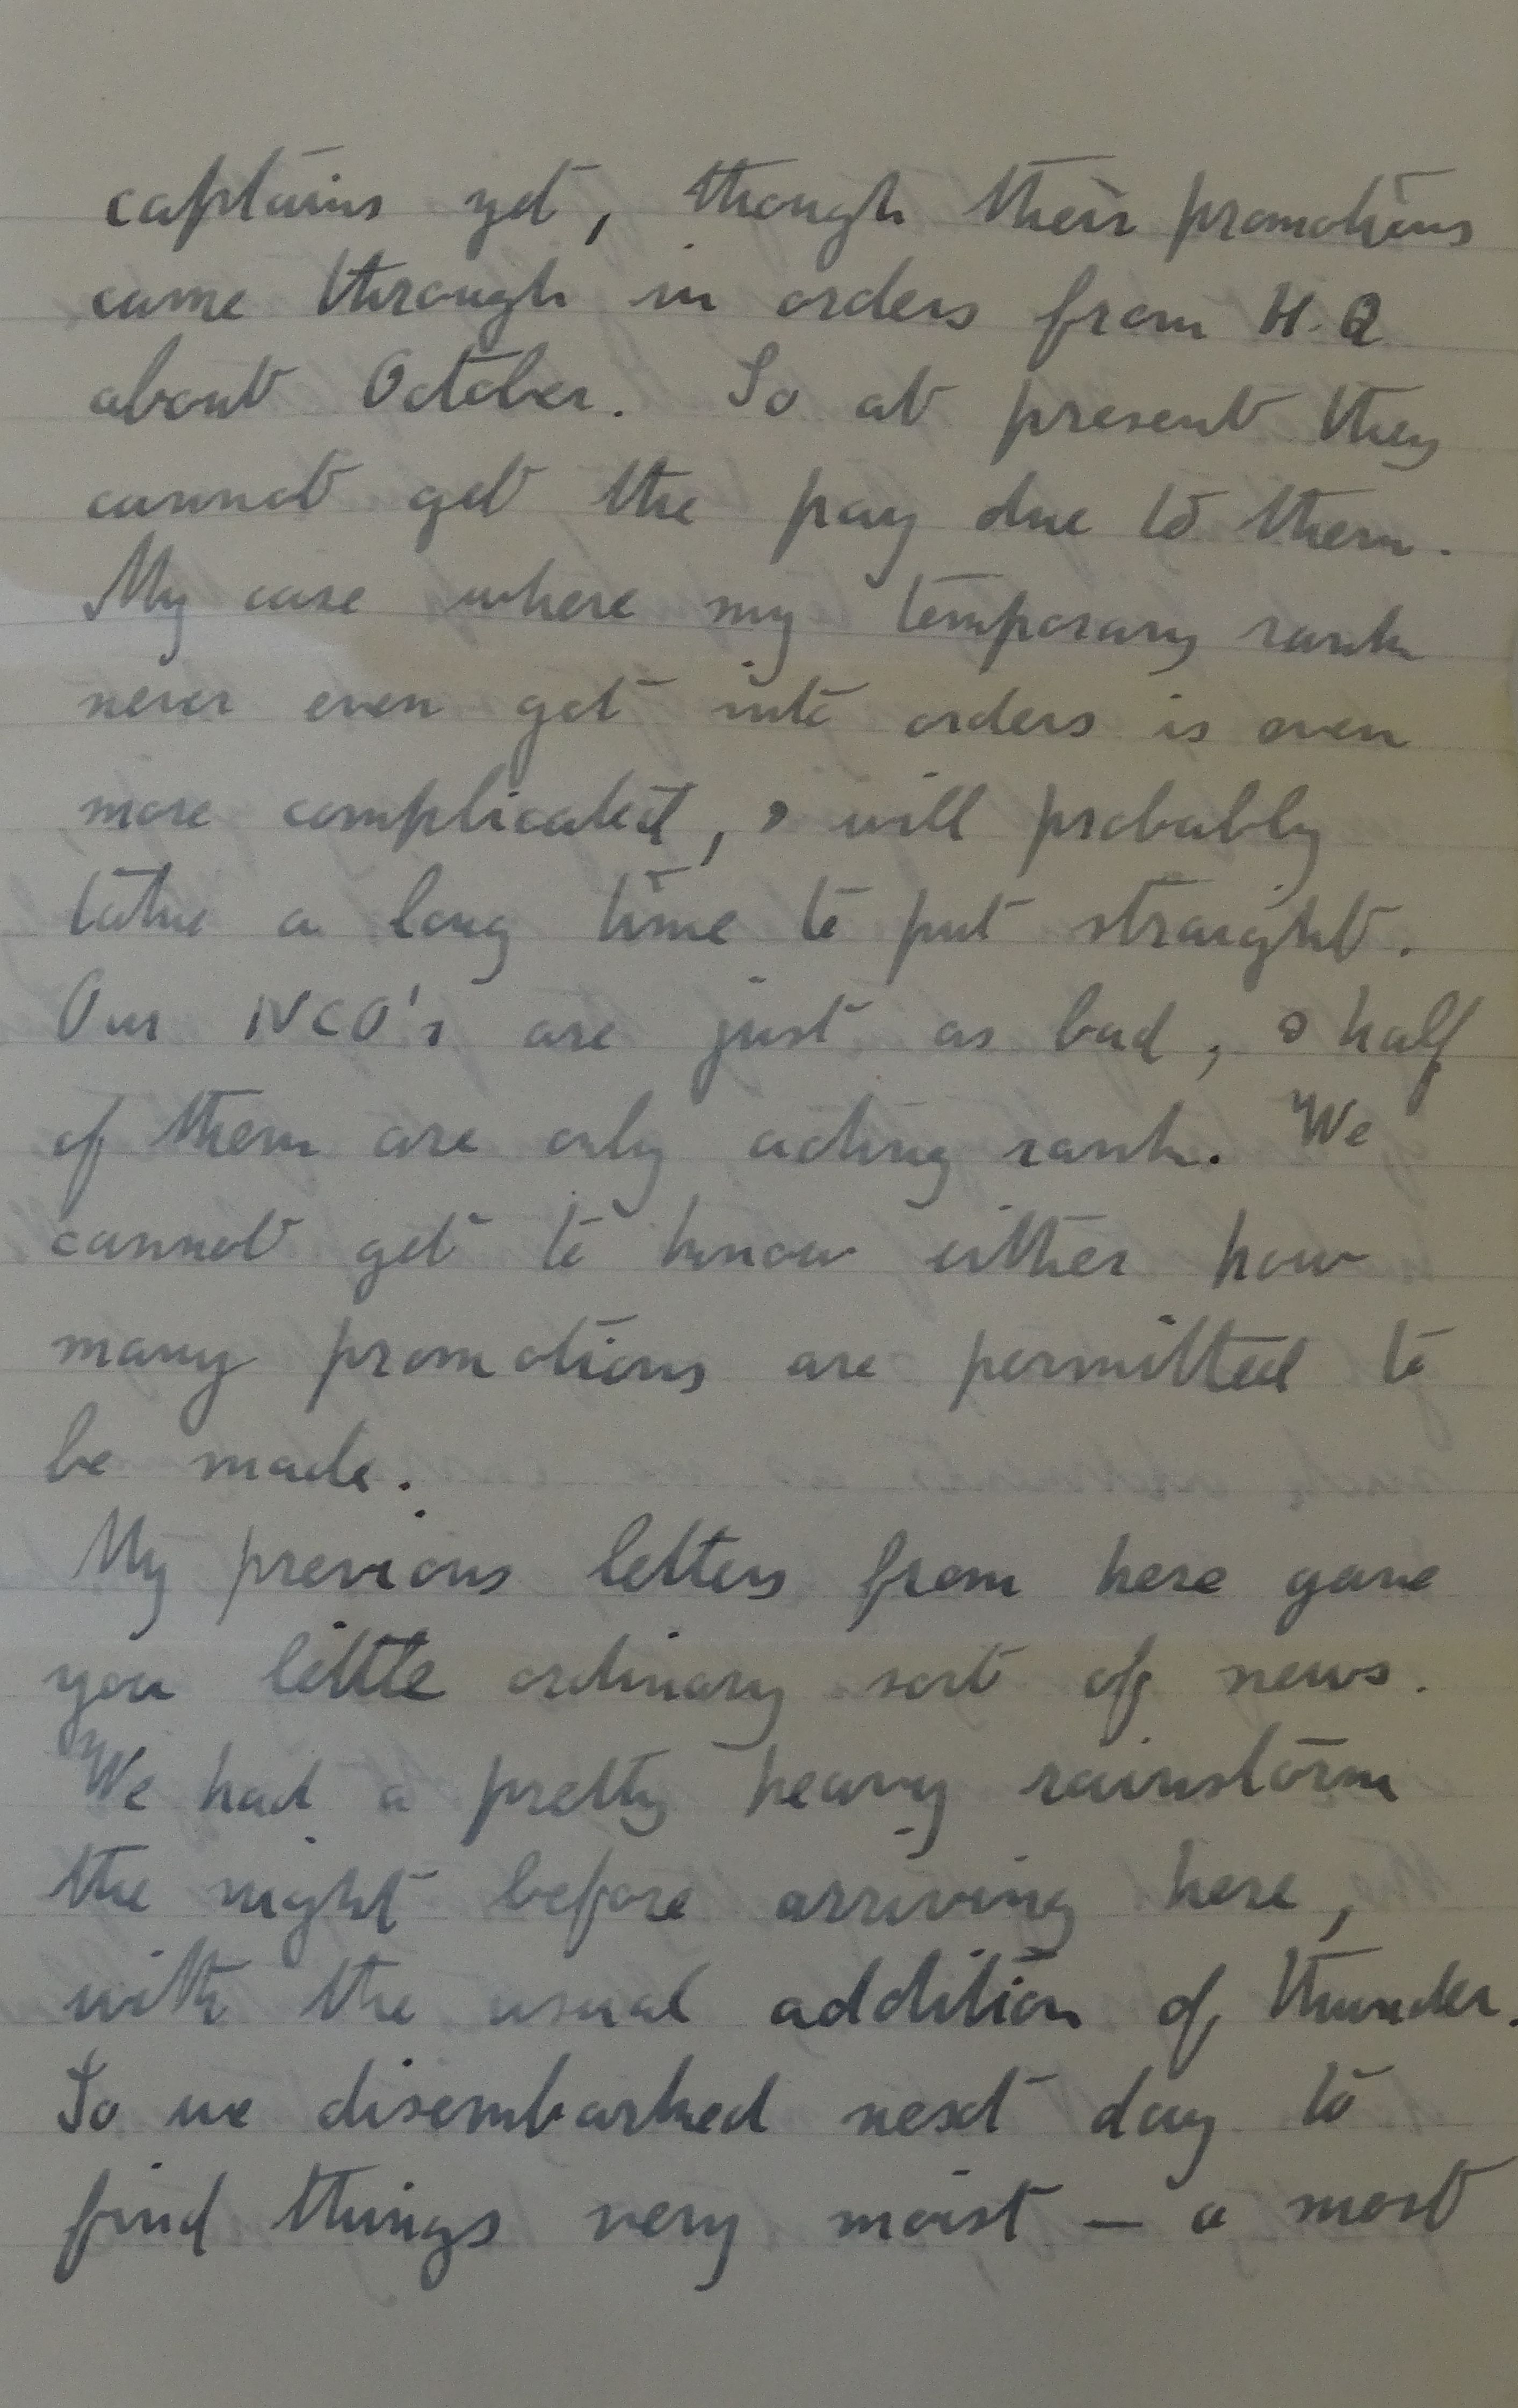 captains yet, though their promotions
came through in orders from H.Q
about October. So at present they
cannot get the pay due to them.
My case where my temporary rank
never even got into orders is even
more complicated, & will probably
take a long time to put straight.
Our NCO's are just as bad, & half
of them are only acting rank. We
cannot get to know either how
many promotions are permitted to
be made.
My previous letters from here gave
you little ordinary sort of news.
We had a pretty heavy rainstorm
the night before arriving here,
with the usual addition of thunder.
So we disembarked next day to
find things very moist — a most